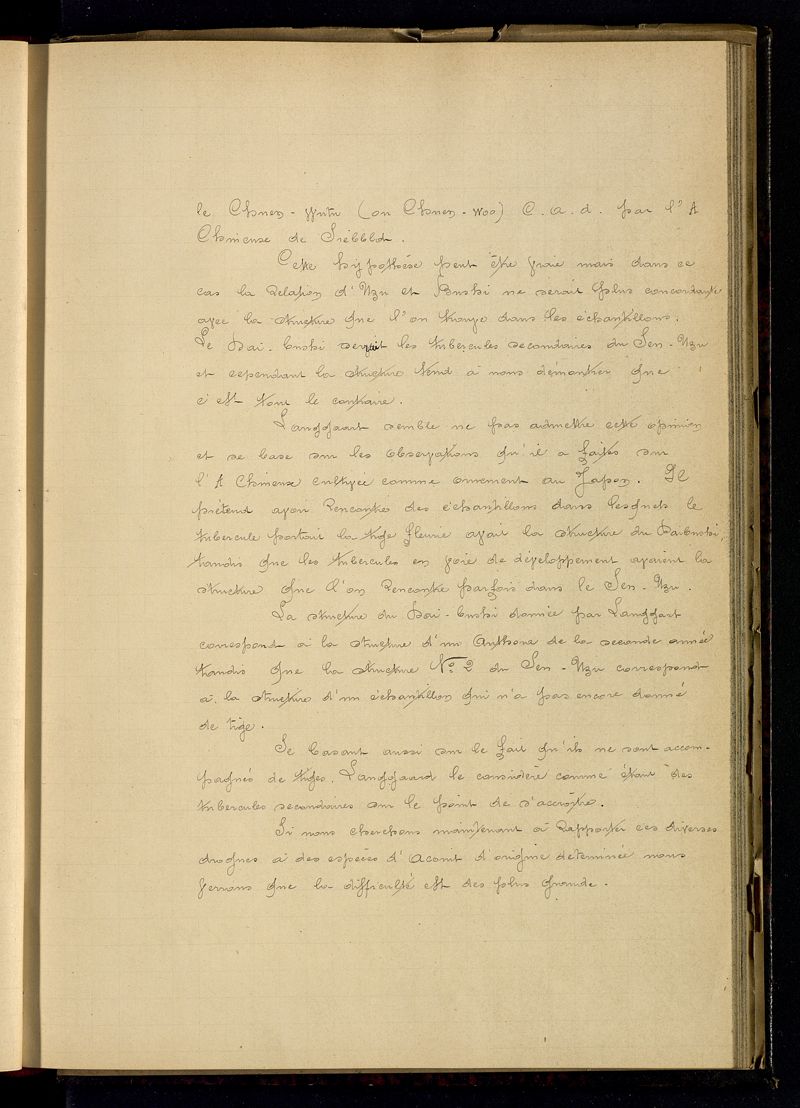 le Chuen - (ou Chuen - Woo) C. a. d. par l' A
Chinense de Siébbld.
Cette hypothèse peut être vraie mais dans ce
cas la Relation d' Uzu et Bushi ne serait plus concordante
avec la structure que l'on trouve dans les échantillons.
Le Daï - bushi serait les tubercules secondaires du Sen - Uzu
et cependant la structure tend à nous démontrer que
c'est tout le contraire.
Langgaart semble ne pas admettre cette opinion
et se base sur les observations qu'il a faites sur
l' A Chinense cultivée comme ornement au Japon. Il
prétend avoir Rencontré des échantillons dans lesquels le
tubercule portait la tige fleurie avait la structure du Daibushi,
tandis que les tubercules en voie de développement avaient la
structure que l'on Rencontre parfois dans le Sen - Uzu.
La structure du Daï - bushi donnée par Langgart
correspond à la structure d'un Anthora de la seconde année
tandis que la structure No 2 du Sen - Uzu correspond
à la structure d'un échantillon qui n'a pas encore donné
de tige.
Se basant aussi sur le fait qu'ils ne sont accom-
pagnés de tiges. Langgaard le considère comme étant des
tubercules secondaires sur le point de s'accroître.
Si nous cherchons maintenant à Rapporter ces diverses
drogues à des espèces d' Aconit d'origine déterminée nous
verrons que la difficulté est des plus grande.